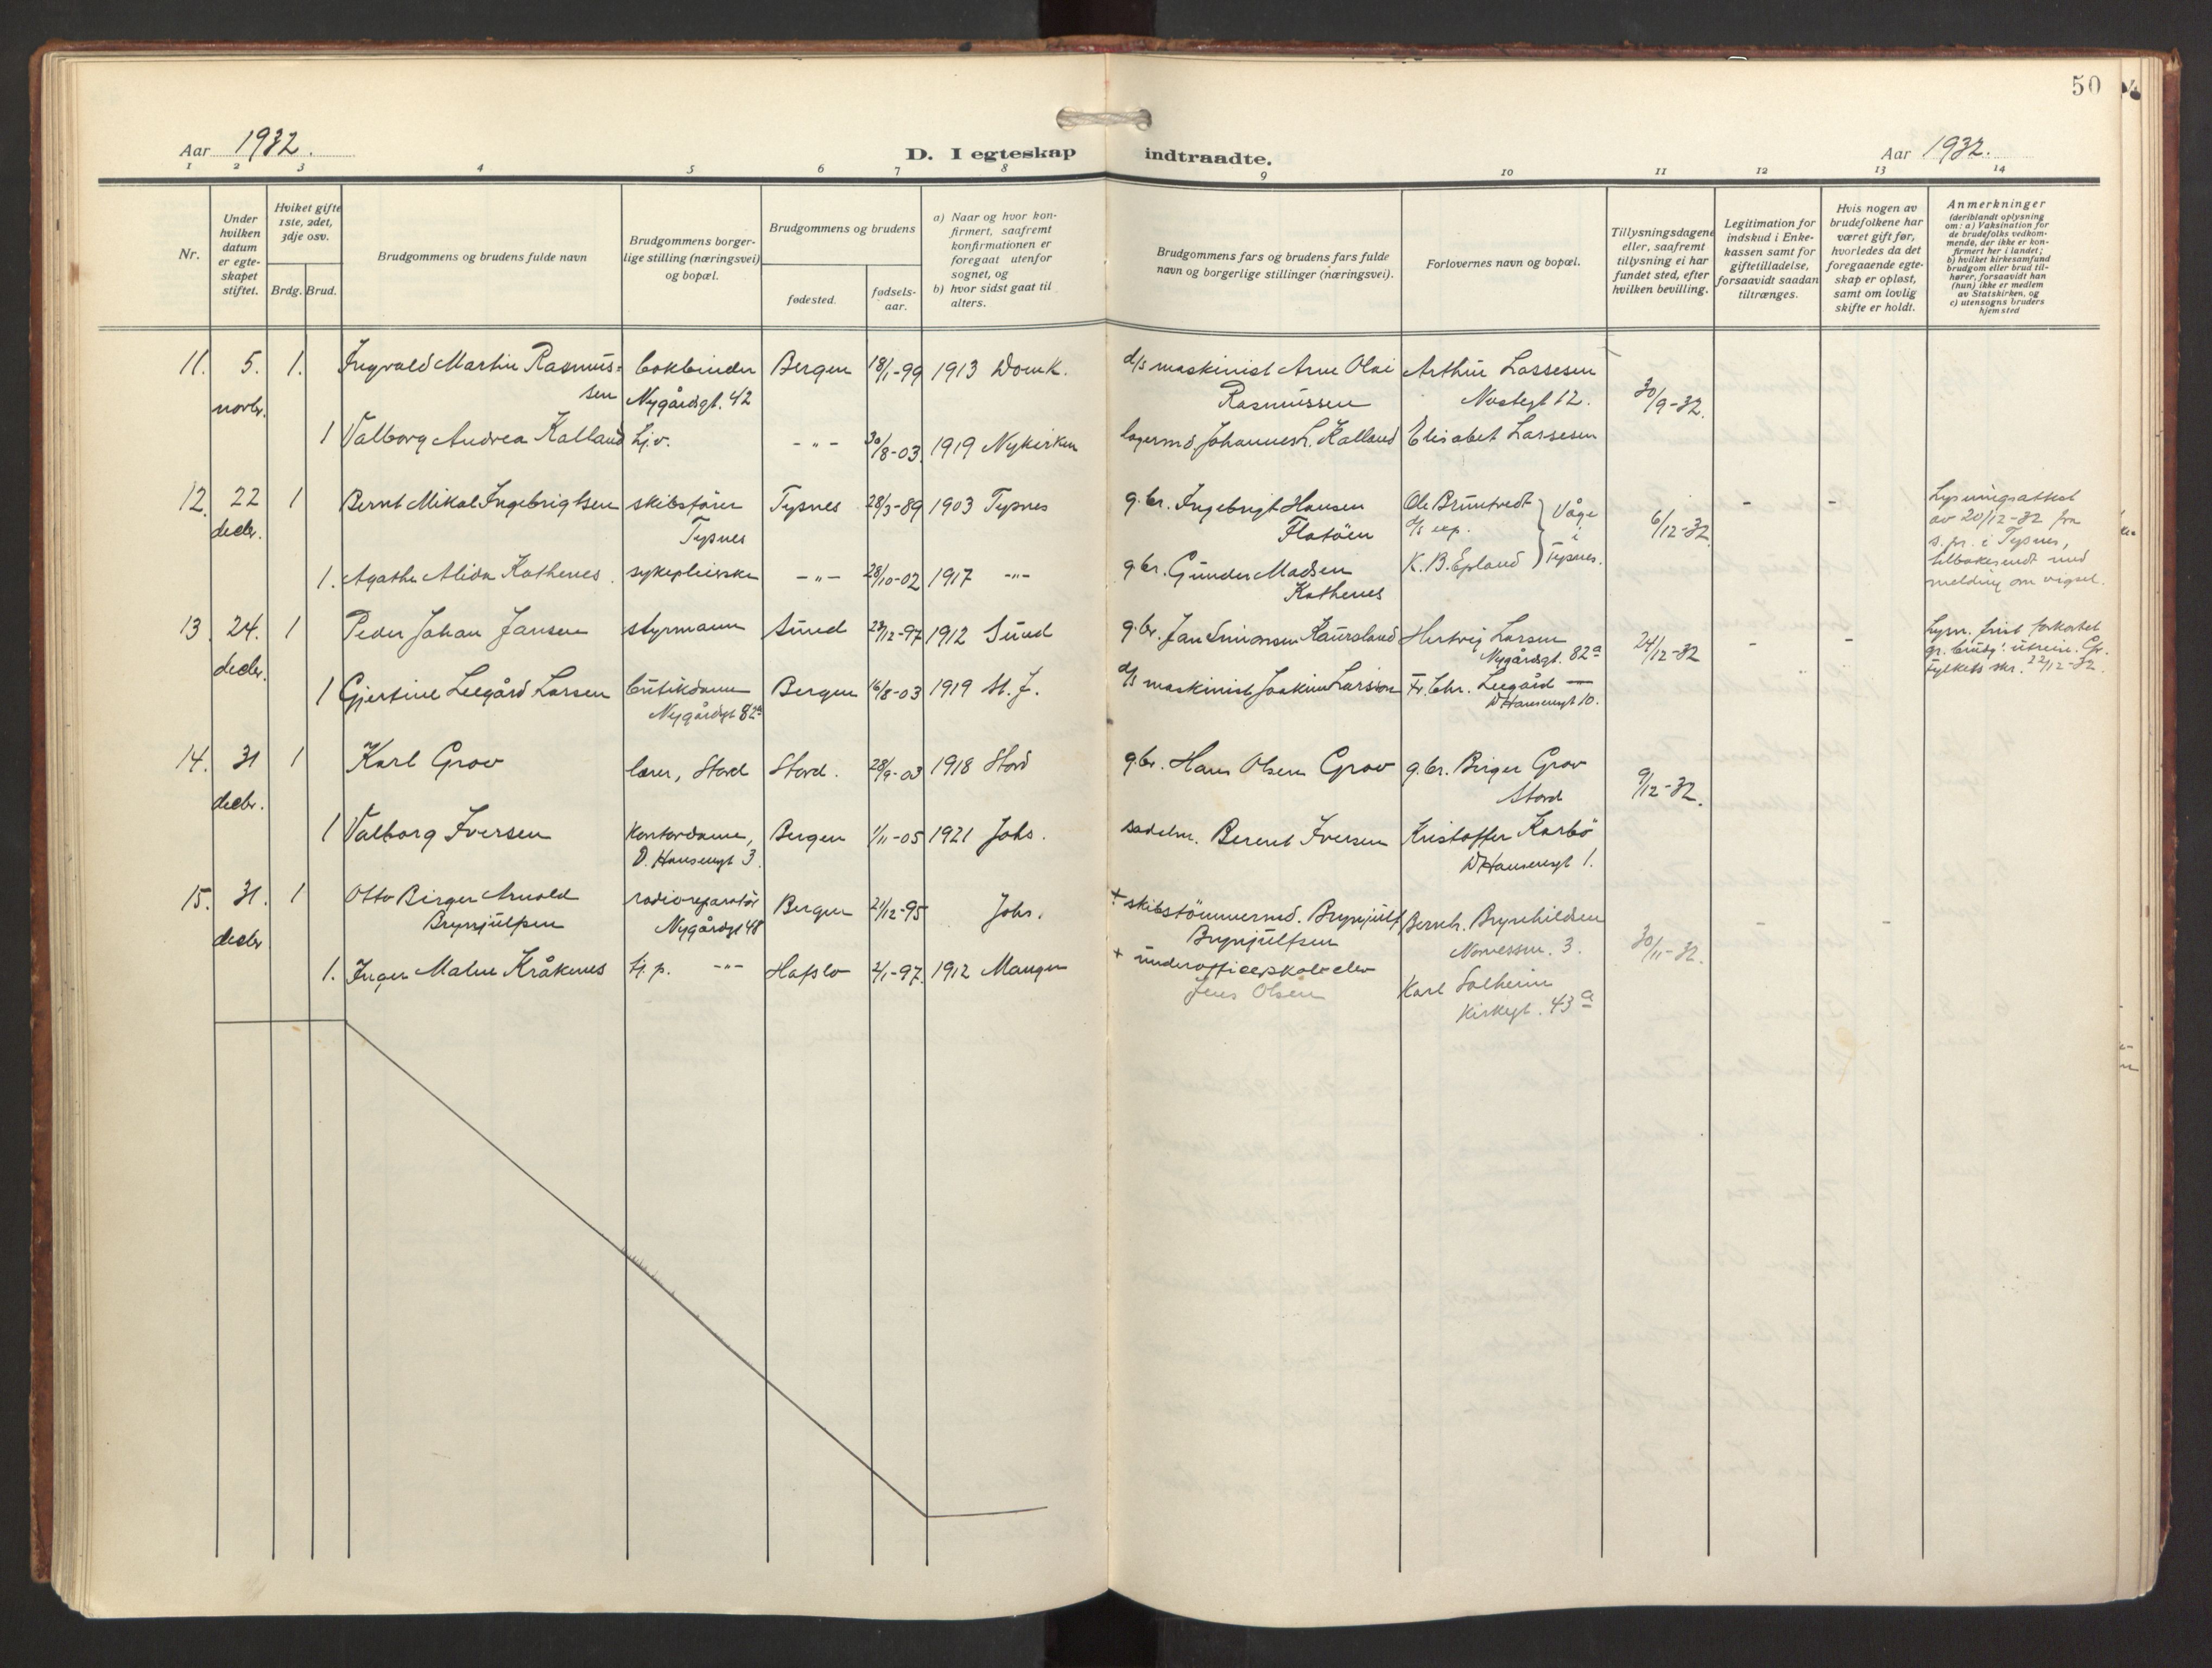 50
Aar 1932.
D. I egteskap indtraadte.
Aar 1932.
1 2 3 4 5 6 7 8 9 10 11 12 13 14
Nr.
Under
hvilken
datum
er egte-
skapet
stiftet.
Hviket gifte
1ste, 2det,
3dje osv.
Brdg. Brud.
Brudgommens og brudens fulde navn
Brudgommens borger-
lige stilling (næringsvei)
og bopæl.
Brudgommens og brudens
fødested.
fødsels-
aar.
a) Naar og hvor kon-
firmert, saafremt
konfirmationen er
foregaat utenfor
sognet, og
b) hvor sidst gaat til
alters.
Brudgommens fars og brudens fars fulde
navn og borgerlige stillinger (næringsvei).
Forlovernes navn og bopæl.
Tillysningsdagene
eller, saafremt
tillysning ei har
fundet sted, efter
hvilken bevilling.
Legitimation for
indskud i Enke-
kassen samt for
giftetilladelse,
forsaavidt saadan
tiltrænges.
Hvis nogen av
brudefolkene har
været gift før,
hvorledes da det
foregaaende egte-
skap er opløst,
samt om lovlig
skifte er holdt.
Anmerkninger
(deriblandt oplysning
om: a) Vaksination for
de brudefolks vedkom-
mende, der ikke er kon-
firmert her i landet;
b) hvilket kirkesamfund
brudgom eller brud til-
hører, forsaavidt han
(hun) ikke er medlem
av Statskirken, og
c) utensogns bruders
hjemsted
11. 5. 1. Ingvald Martin Rasmus- bokbinder Bergen 18/1-99 1913 Domk. d/s maskinist Arne Olai Arthur Lassesen
novbr. sen Nygårdsgt. 42 Rasmussen Nostegt 12. 30/9-32.
1 Valborg Andrea Kalland Hj.v. -"- 30/8-03 1919 Nykirken lagermd Johannes L. Kalland Elisabet Lassesen
12. 22 1 Bernt Mikal Ingebrigtsen skibsfører Tysnes 28/3-89 1903 Tysnes g.br. Ingebrigt Hansen Ole Bruntvedt Våge 6/12-32 - - Lysningsattest
decbr. Tysnes Flatöen d/s exp. i av 20/12-32 fra
s.pr. i Tysnes,
1. Agathe Alida Kathenes sykepleierske -"- 28/10-02 1917 -"- g.br. Gunder Madsen K. B. Epland Tysnes. tilbakesendt med
Kathenes melding om vigsel.
13 24. 1 Peder Johan Jansen styrmann Sund 29/12-97 1912 Sund g.br. Jan Simonsen Kausland Hertvig Larsen 24/12-32 - - Lysn. frist forkortet
decbr. Nygårdsgt. 82a gr. brudg. utreise. Cfr.
fylkets skr. 22/12-32.
1 Gjertine Leegård Larsen butikdame Bergen 16/8-03 1919 St. J. d/s maskinist Joakim Larsen Fr. Chr. Leegård —
Nygårdsgt 82a D Hansensgt 10.
14. 31 1 Karl Grov lærer, Stord Stord. 28/9-03 1918 Stord g.br. Hans Olsen Grov g.br. Birger Grov 9/12-32.
decbr. Stord
1 Valborg Iversen Kontordame, Bergen 1/11-05 1921 Johs. sadelm. Berent Iversen Kristoffer Karbö
D. Hansensgt 3. D Hansensgt 1.
15. 31. 1 Otto Birger Arnold radioreparatör Bergen 21/12-95 Johs. + skibstömmermd. Brynjulf Bernh. Brynhildsen 30/11-32. - -
decbr Brynjulfsen Nygårdsgt 48 Brynjulfsen Norvessm. 3.
1. Inger Malen Kråkenes Hj. p. -"- Hafslo 2/1-97. 1912 Manger + underofficerskole elev Karl Solheim
Jens Olsen Kirkegt. 43a